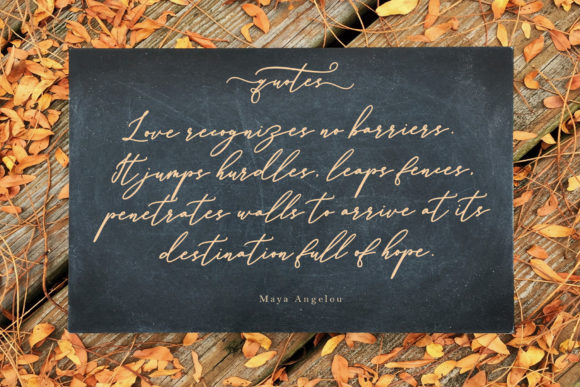 quotes
Love recognizes no barriers.
It jumps hurdles, leaps fences,
penetrates walls to arrive at its
destination full of hope.
Maya Angelou